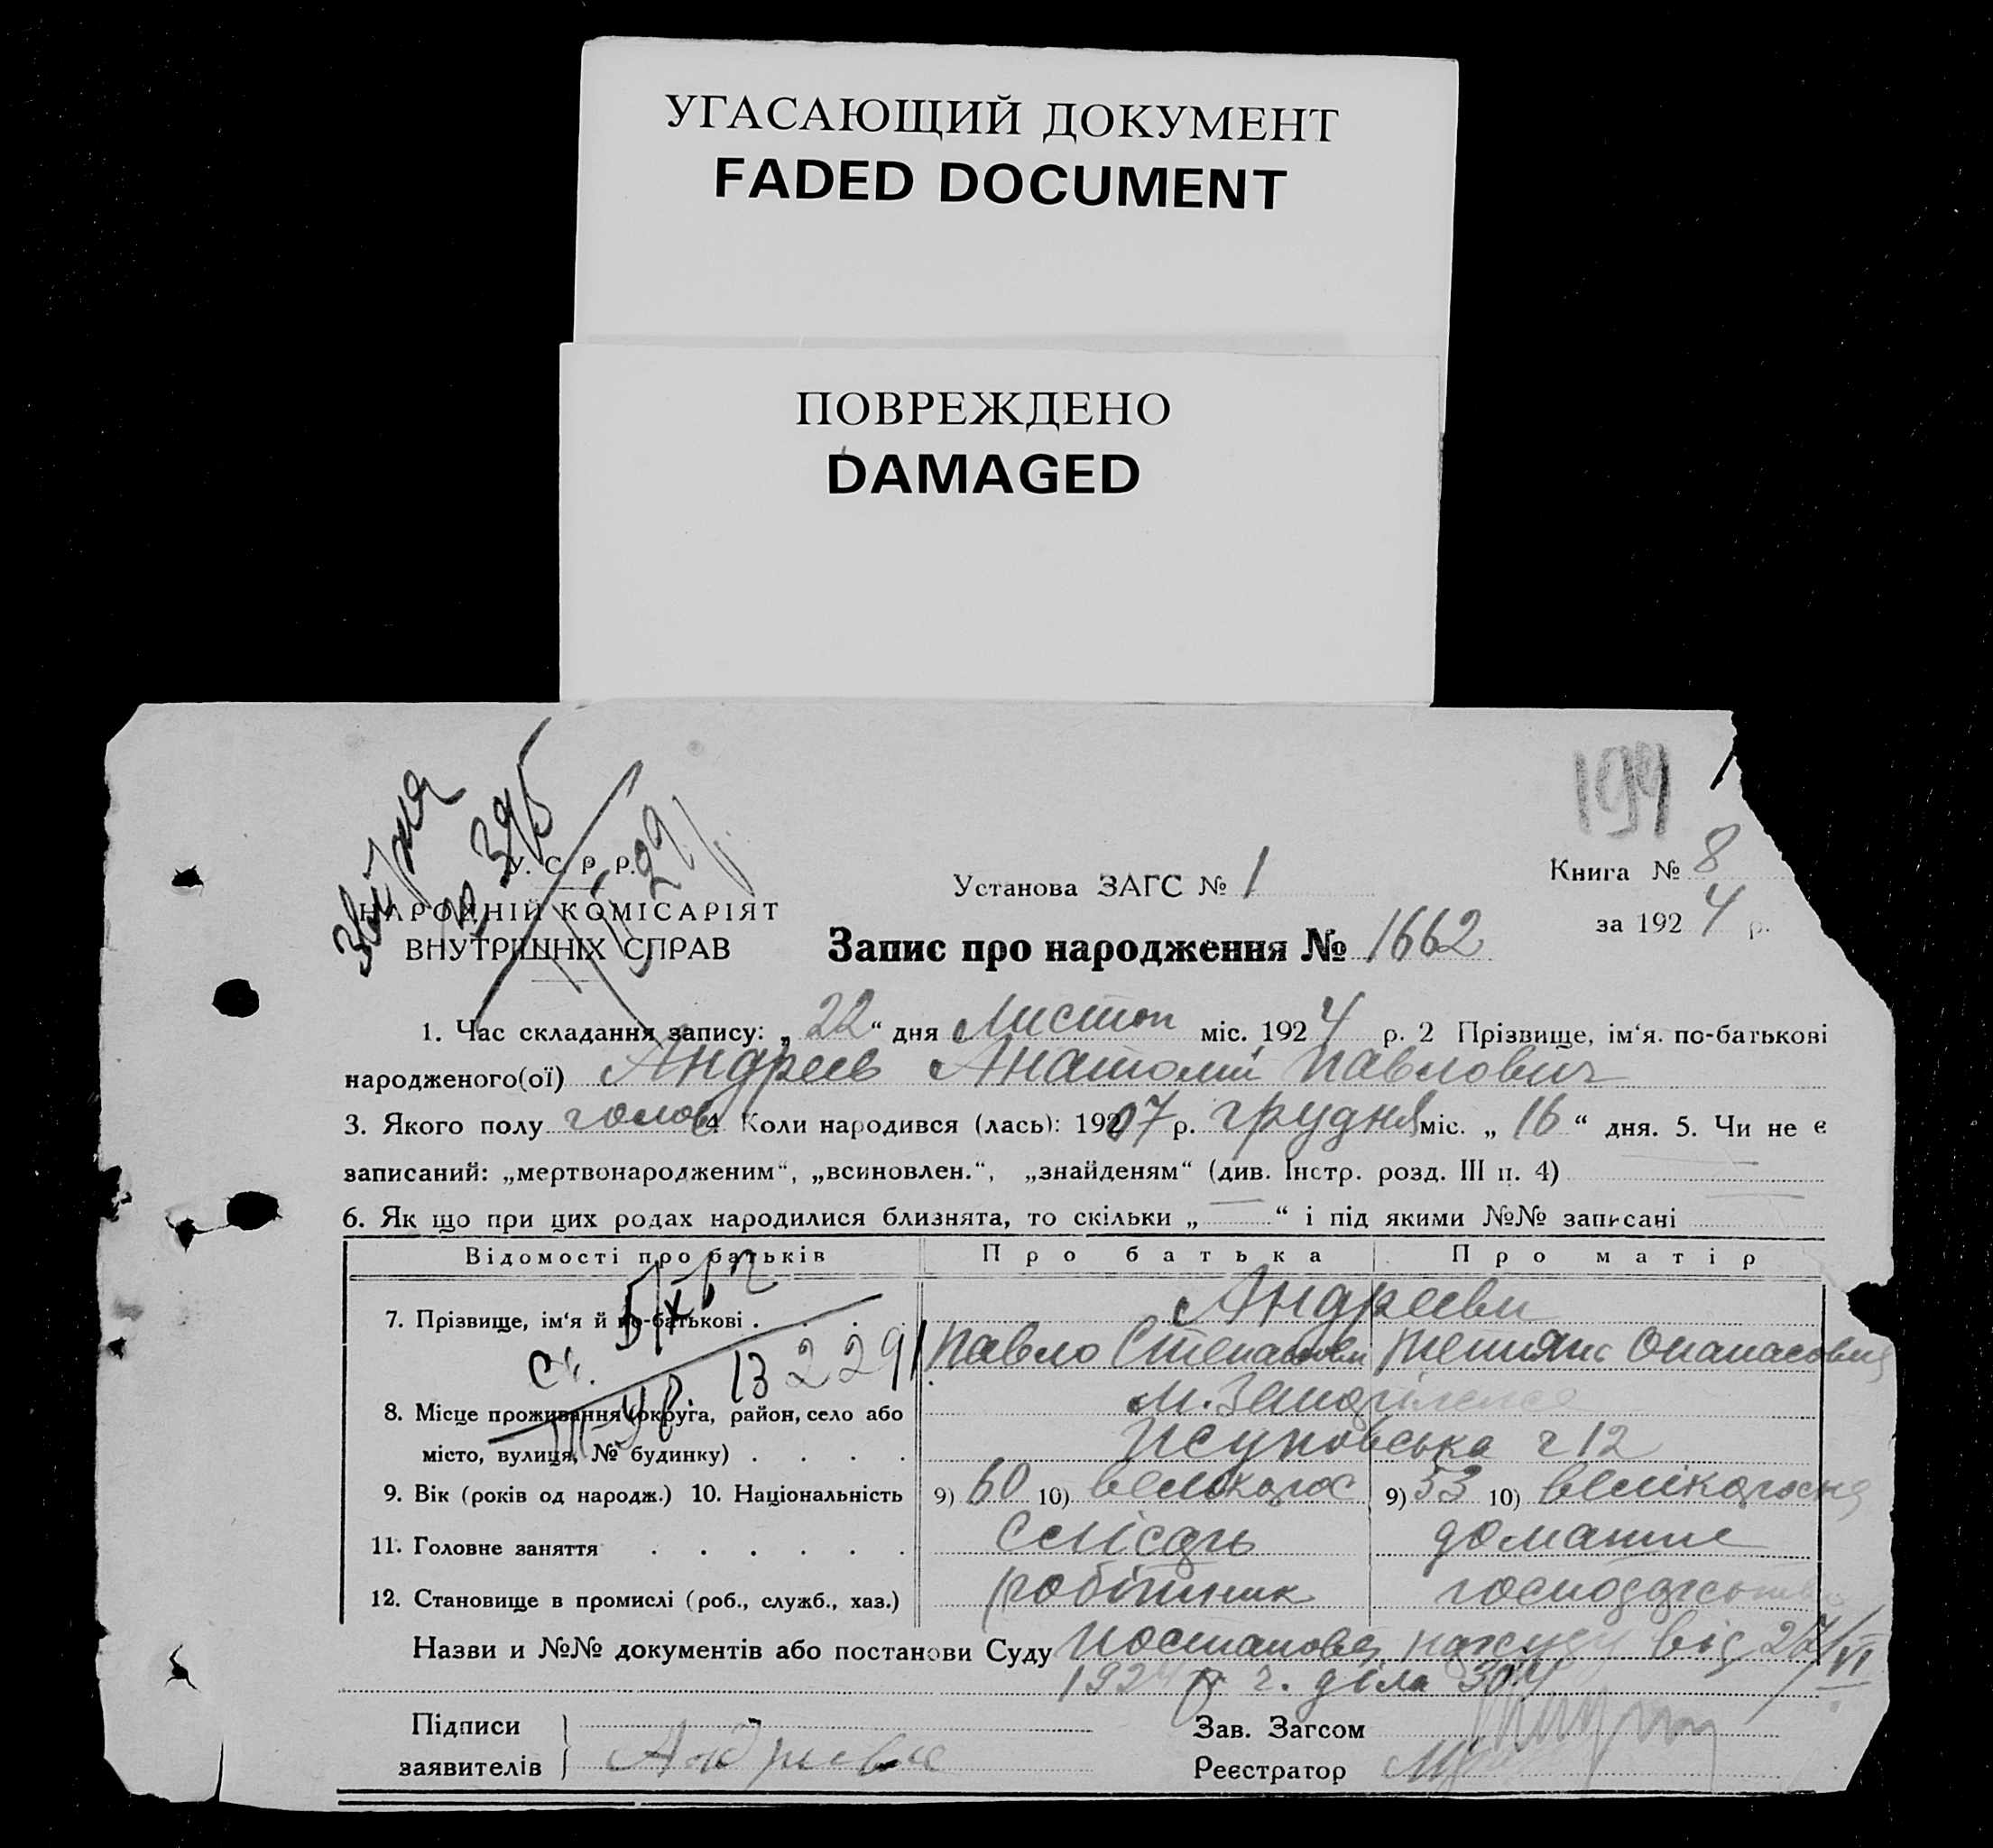 УГАСАЮЩИЙ ДОКУМЕНТ
FADED DOCUMENT
ПОВРЕЖДЕНО
DAMAGED
У. С. Р. Р.
НАРОДНІЙ КОМІСАРІЯТ
ВНУТРІШНІХ СПРАВ
Установа ЗАГС № 1
Книга № 8
за 1924 р.
Запис про народження № 1662
1. Час складання запису: „22“ дня Листоп міс. 1924 р. 2 Прізвище, ім‘я. по-батькові
народженого(ої) Андреев Анатолий Павлович
3. Якого полу голов 4 Коли народився (лась): 1907 р. грудня міс. „16“ дня. 5. Чи не є
записаний: „мертвонародженим“, „всиновлен.“, „знайденям“ (див. Інстр. розд. III п. 4)
6. Як що при цих родах народилися близнята, то скільки „—“ і під якими №№ записані
Відомості про батьків Про батька Про матір
7. Прізвище, ім‘я й по-батькові . . . . Андреєви
Павло Степанови Опанасовна
13 2291
8. Місце проживання (округа, район, село або
місто, вулиця, № будинку) . . . . ч 12
9. Вік (років од народж.) 10. Національність 9) 60 10) великорос 9) 53 10) великоросна
11. Головне заняття . . . . . . слісарь домашнє
12. Становище в промислі (роб., служб., хаз.) робітник господарство
Назви и №№ документів або постанови Суду Постанова нарсуду від 27/VI
1924 р. ч. діла 304
Підписи
заявителів
Зав. Загсом
Реєстратор